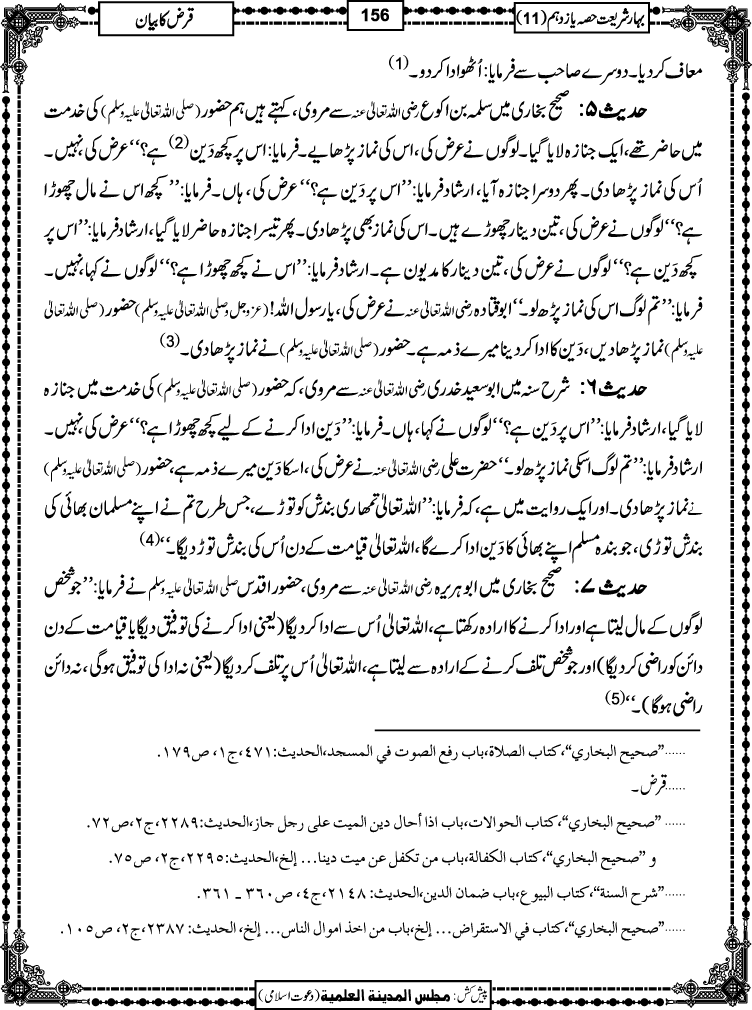 بہارشریعت حصہ یازدہم (11)
156
قرض کا بیان
معاف کردیا۔ دوسرے صاحب سے فرمایا: اُٹھو ادا کردو۔ (1)
حدیث ۵: صحیح بخاری میں سلمہ بن اکوع رضی اللہ تعالیٰ عنہ سے مروی، کہتے ہیں ہم حضور (صلی اللہ تعالیٰ علیہ وسلم) کی خدمت
میں حاضر تھے، ایک جنازہ لایا گیا۔ لوگوں نے عرض کی، اس کی نماز پڑھایے۔ فرمایا: اس پر کچھ دَین (2) ہے؟‘‘ عرض کی، نہیں۔
اُس کی نماز پڑھا دی۔ پھر دوسرا جنازہ آیا، ارشاد فرمایا: ’’اس پر دَین ہے؟‘‘ عرض کی، ہاں۔ فرمایا: ’’کچھ اس نے مال چھوڑا
ہے؟‘‘ لوگوں نے عرض کی، تین دینار چھوڑے ہیں۔ اس کی نماز بھی پڑھا دی۔ پھر تیسرا جنازہ حاضر لایا گیا، ارشاد فرمایا: ’’اس پر
کچھ دَین ہے؟‘‘ لوگوں نے عرض کی، تین دینار کا مدیون ہے۔ ارشاد فرمایا: ’’اس نے کچھ چھوڑا ہے؟‘‘ لوگوں نے کہا، نہیں۔
فرمایا: ’’تم لوگ اس کی نماز پڑھ لو۔‘‘ ابوقتادہ رضی اللہ تعالیٰ عنہ نے عرض کی، یارسول اللہ! (عزوجل وصلی اللہ تعالیٰ علیہ وسلم) حضور (صلی اللہ تعالیٰ
علیہ وسلم) نماز پڑھادیں، دَین کا ادا کردینا میرے ذمہ ہے۔ حضور (صلی اللہ تعالیٰ علیہ وسلم) نے نماز پڑھا دی۔ (3)
حدیث ۶: شرح سنہ میں ابوسعید خدری رضی اللہ تعالیٰ عنہ سے مروی، کہ حضور (صلی اللہ تعالیٰ علیہ وسلم) کی خدمت میں جنازہ
لایا گیا، ارشاد فرمایا: ’’اس پر دَین ہے؟‘‘ لوگوں نے کہا، ہاں۔ فرمایا: ’’دَین ادا کرنے کے لیے کچھ چھوڑا ہے؟‘‘ عرض کی، نہیں۔
ارشاد فرمایا: ’’تم لوگ اسکی نماز پڑھ لو۔‘‘ حضرت علی رضی اللہ تعالیٰ عنہ نے عرض کی، اسکا دَین میرے ذمہ ہے، حضور (صلی اللہ تعالیٰ علیہ وسلم)
نے نماز پڑھا دی۔ اور ایک روایت میں ہے، کہ فرمایا: ’’اللہ تعالیٰ تمھاری بندش کو توڑے، جس طرح تم نے اپنے مسلمان بھائی کی
بندش توڑی، جو بندہ مسلم اپنے بھائی کا دَین ادا کرے گا، اللہ تعالیٰ قیامت کے دن اُس کی بندش توڑ دیگا۔‘‘ (4)
حدیث ۷: صحیح بخاری میں ابوہریرہ رضی اللہ تعالیٰ عنہ سے مروی، حضور اقدس صلی اللہ تعالیٰ علیہ وسلم نے فرمایا: ’’جو شخص
لوگوں کے مال لیتا ہے اور ادا کرنے کا ارادہ رکھتا ہے، اللہ تعالیٰ اُس سے ادا کردیگا (یعنی ادا کرنے کی توفیق دیگا یا قیامت کے دن
دائن کو راضی کردیگا) اور جو شخص تلف کرنے کے ارادہ سے لیتا ہے، اللہ تعالیٰ اُس پر تلف کردیگا (یعنی نہ ادا کی توفیق ہوگی، نہ دائن
راضی ہوگا)۔‘‘ (5)
......”صحيح البخاري“،كتاب الصلاة،باب رفع الصوت في المسجد،الحديث:٤٧١،ج١، ص١٧٩.
......قرض۔
......”صحيح البخاري“،كتاب الحوالات،باب اذا أحال دين الميت على رجل جاز،الحديث:٢٢٨٩،ج٢،ص٧٢.
و ”صحيح البخاري“،كتاب الكفالة،باب من تكفل عن ميت دينا... إلخ،الحديث:٢٢٩٥،ج٢، ص٧٥.
......”شرح السنة“،كتاب البيوع،باب ضمان الدين،الحديث: ٢١٤٨،ج٤، ص٣٦٠ ـ ٣٦١.
......”صحيح البخاري“،كتاب في الاستقراض... إلخ،باب من اخذ اموال الناس... إلخ، الحديث: ٢٣٨٧،ج٢، ص١٠٥.
پیش کش: مجلس المدینۃ العلمیۃ (دعوت اسلامی)